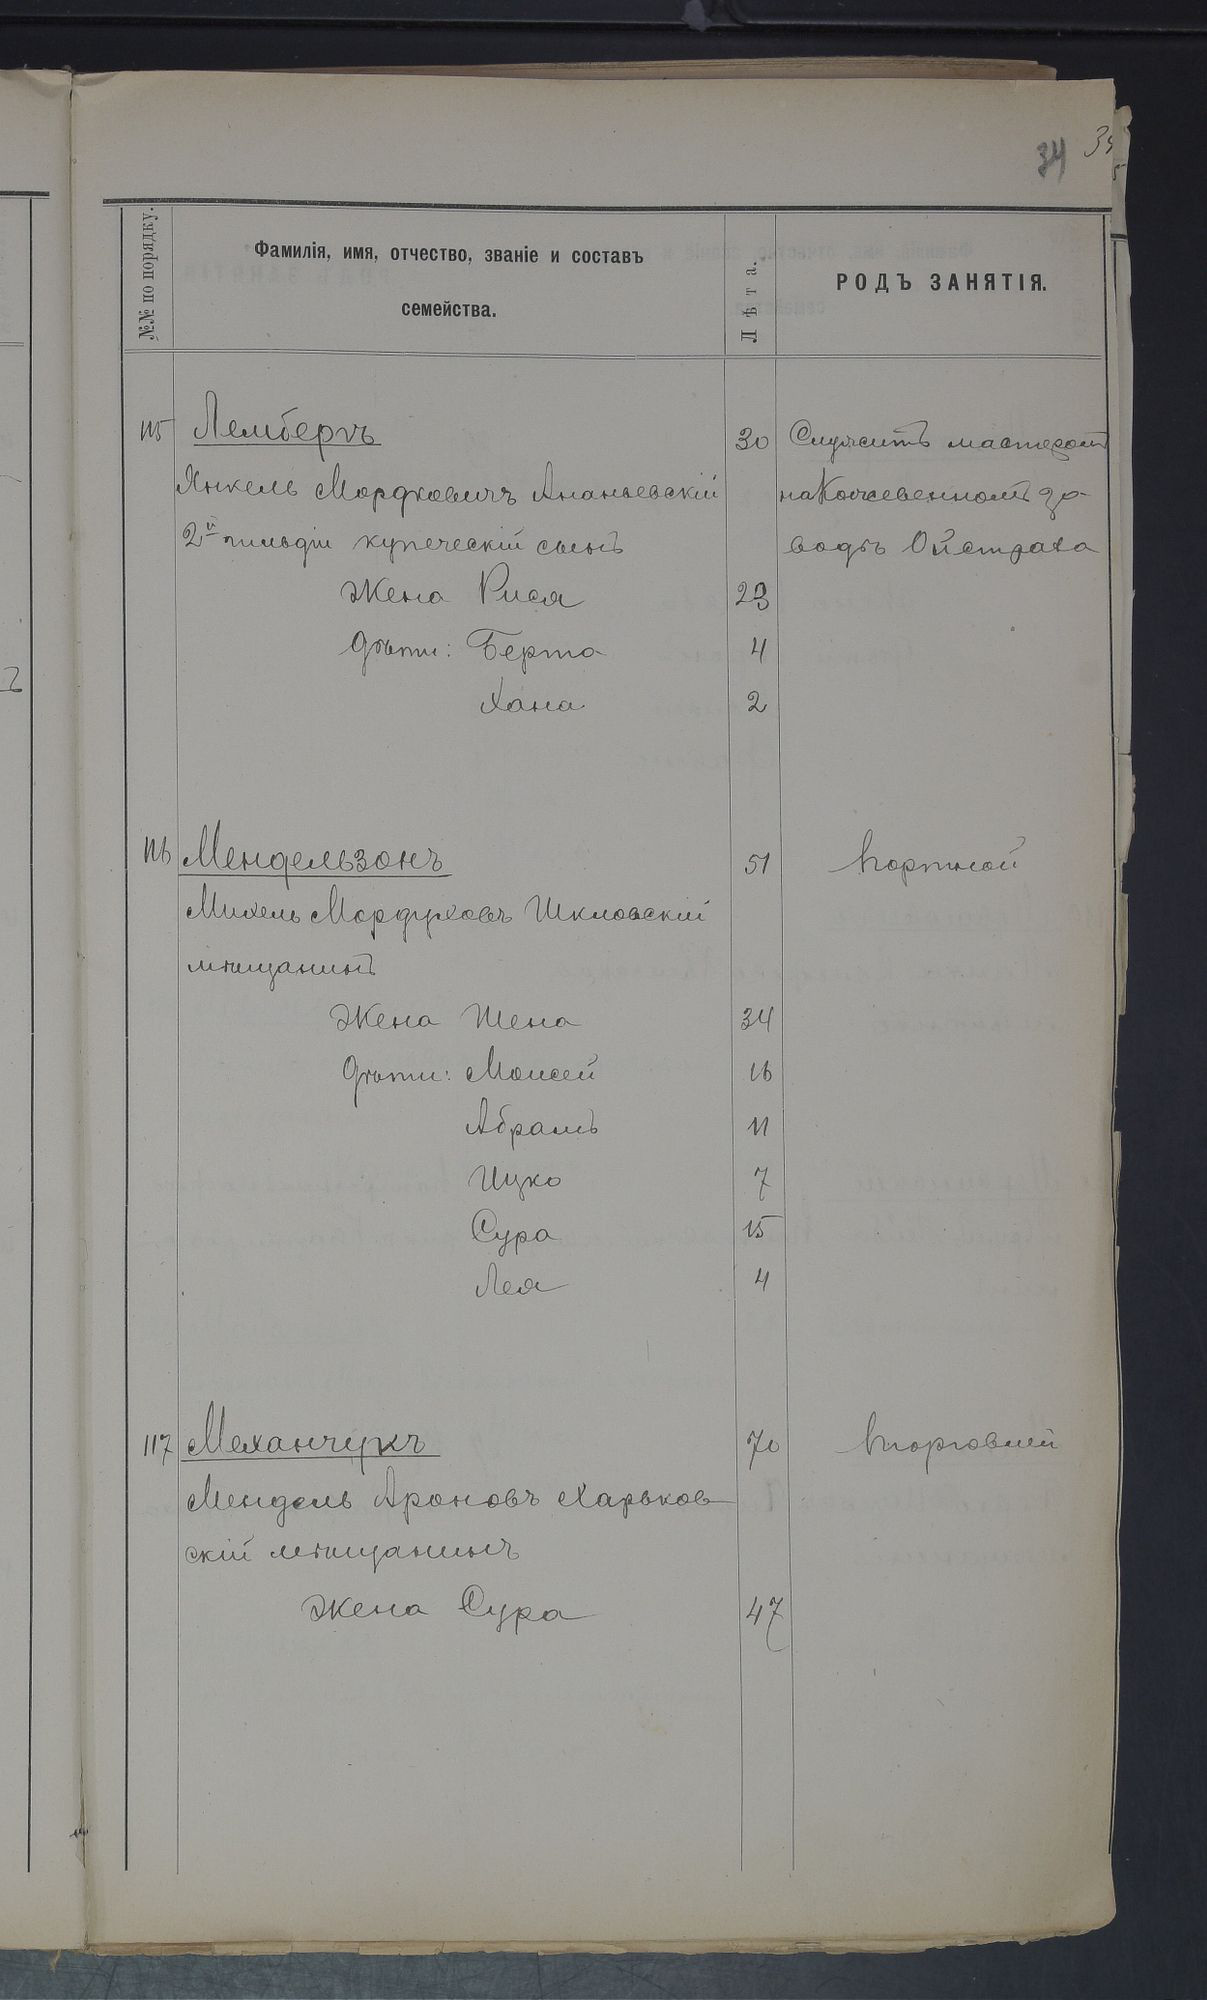 34
№№ по порядку.
Фамилія, имя, отчество, званіе и составъ
семейства.
Лѣта.
РОДЪ ЗАНЯТІЯ.
115 Лембергъ 30 Служитъ мастеромъ
Янкель Мордковичъ Ананьевскій на Кожевенномъ за-
2й гильдіи купеческій сынъ водѣ Ойстраха
Жена Рися 23
Дѣти: Берта 4
Хана 2
116 Мендельзонъ 51 Портной
Михель Мордуховъ Шкловскій
мѣщанинъ
Жена Шена 34
Дѣти: Моисей 16
Абрамъ 11
Ицко 7
Сура 15
Лея 4
117 Механчукъ 70 Торговлей
Мендель Ароновъ Харьков
скій мѣщанинъ
Жена Сура 47